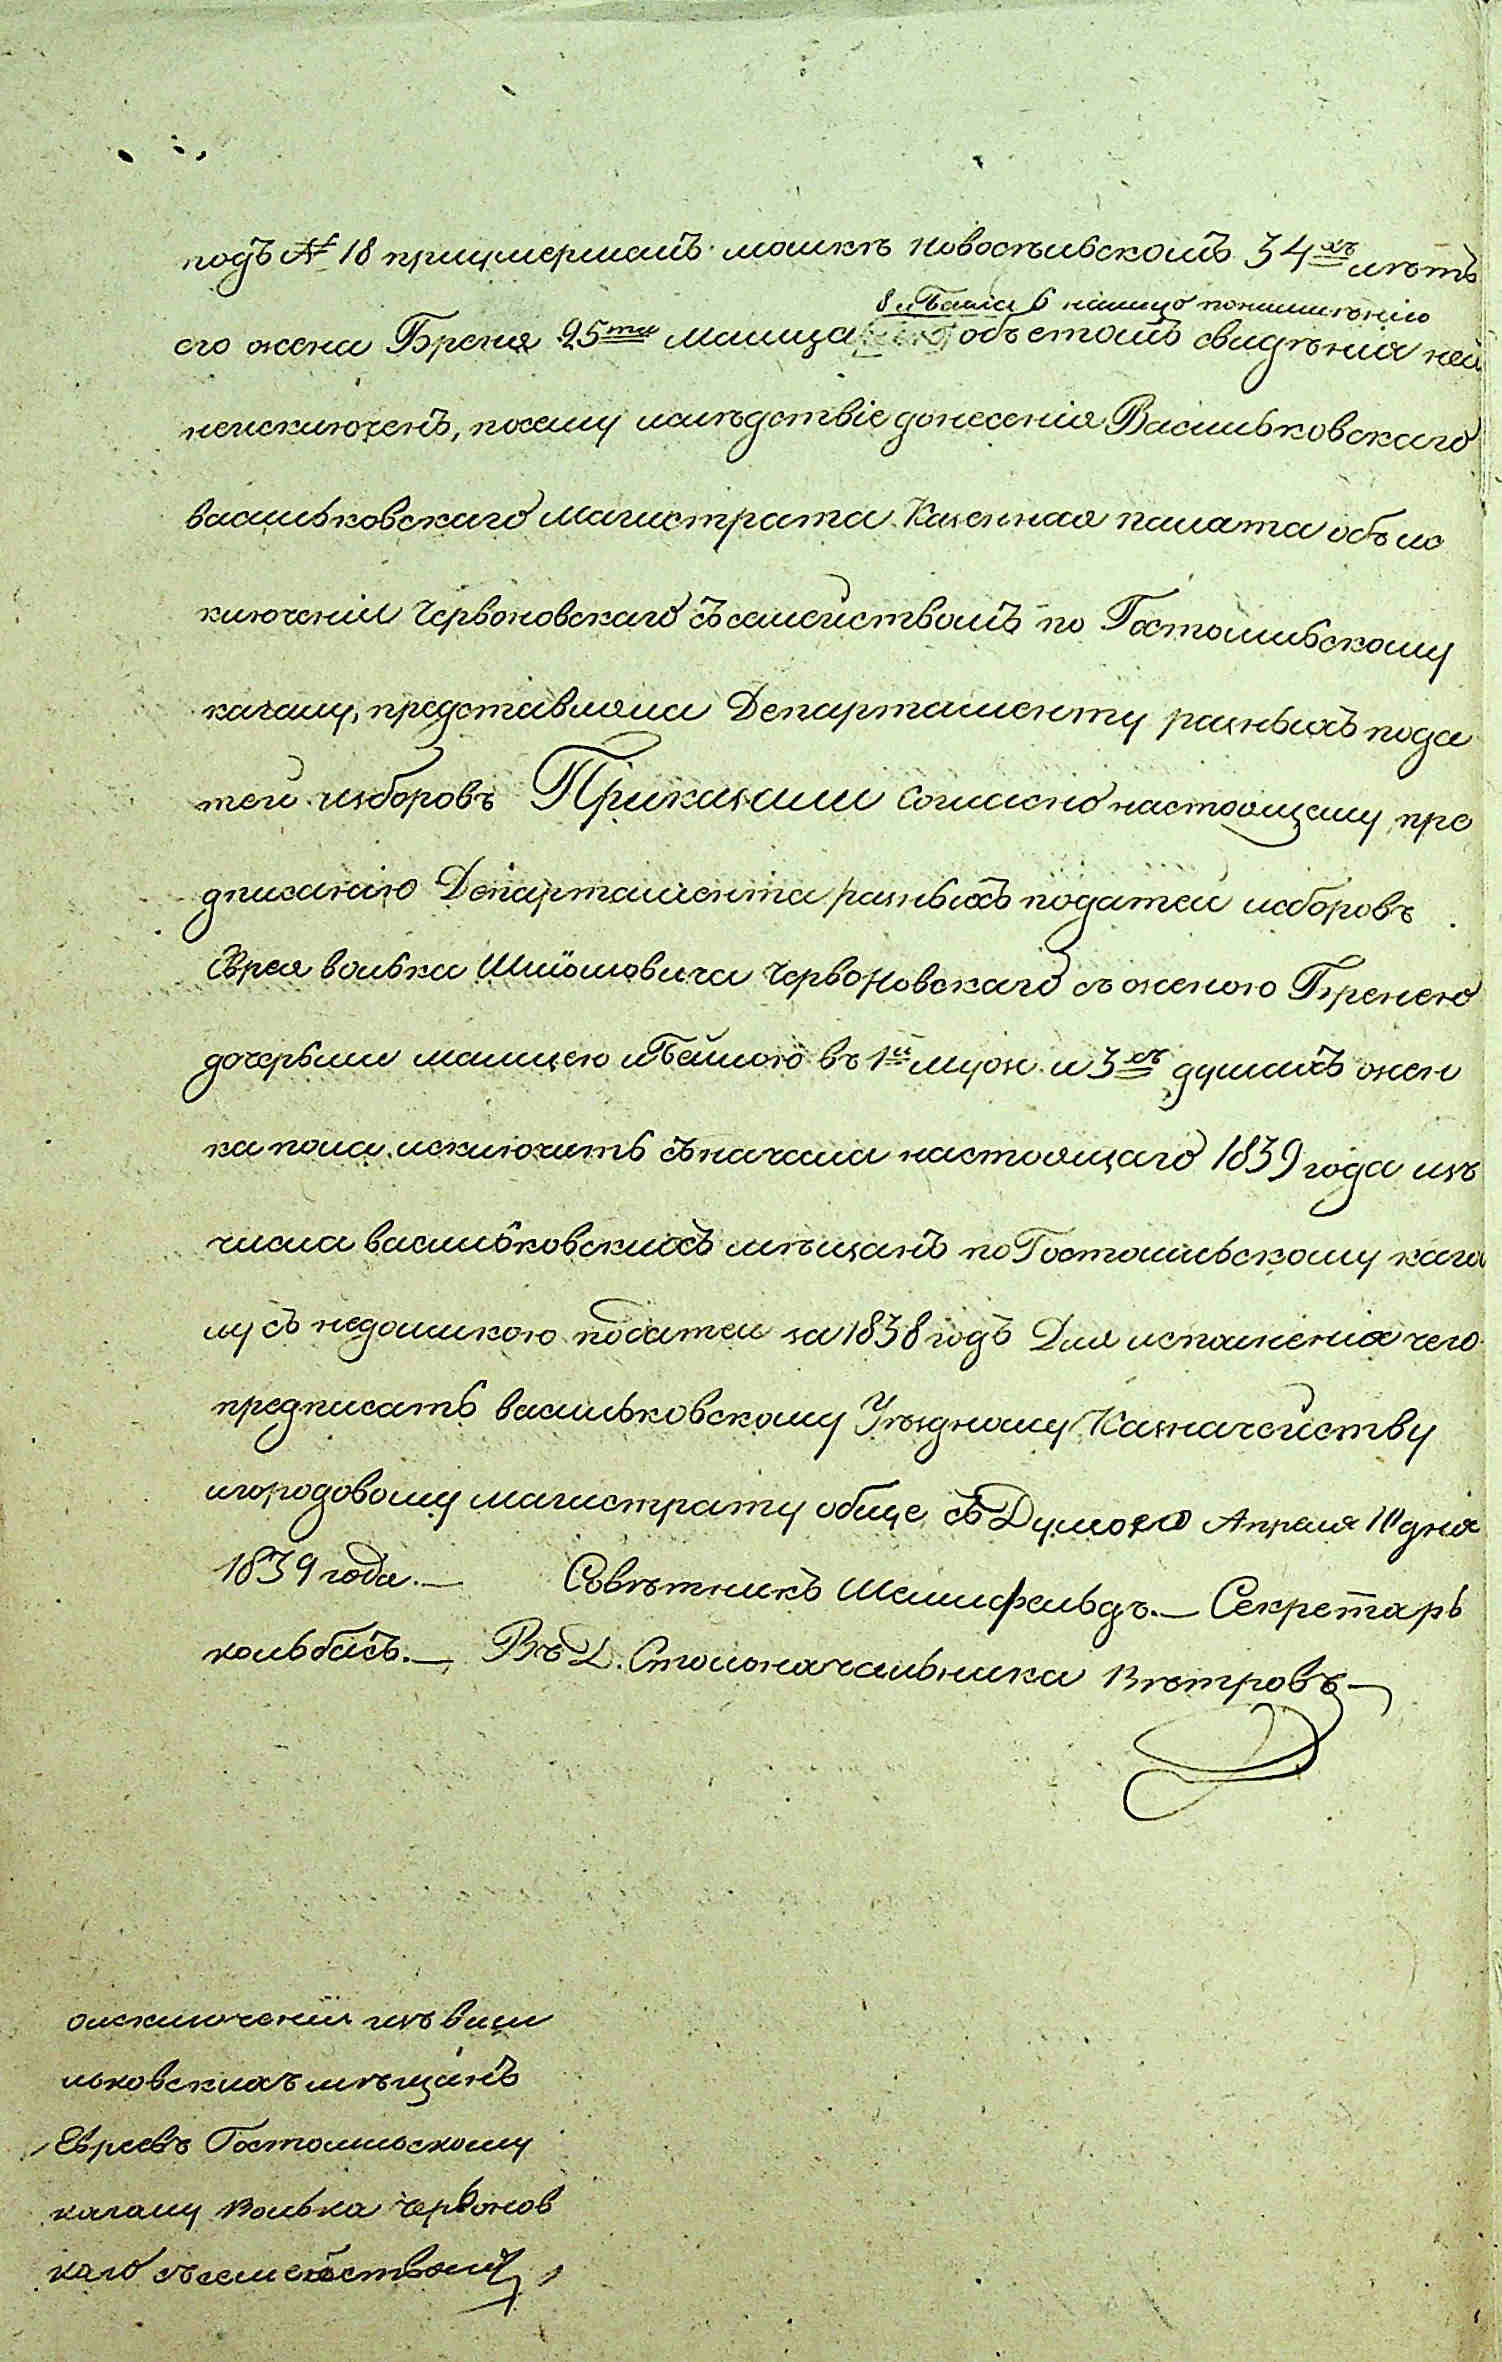 подъ № 18 приумершемъ мошкѣ Новосѣльскомъ 34хъ лѣтъ
8 и Бейла 6 нашецо
его жена Бреня 25ти малица объ етомъ свидѣнія ней
неисключенъ, почему наслѣдствіе донесенія Васильковскаго
васильковскаго магистрата Казенная палата объ ис
ключеніи Червоновскаго съ семействомъ по Гостомльскому
кагалу, представляла Департаменту разныхъ пода
тей исборовъ Приказали согласно настоящему пре
дписанію Департамента разныхъ податей исборовъ
Еврея волька Шліомовича Червоновскаго съ женою Бренею
дочерьми малицею и Бейлою въ 1й муж. и 3хъ душахъ жен
ка пола исключить съ начала настоящаго 1839 года изъ
числа васильковскихъ мѣщанъ по Гостомльскому кага
лу съ недоимкою податей за 1838 годъ Для исполненія чего
предписать васильковскому Уѣздному Казначейству
игородовому магистрату обще съ Думою Апреля 10 дня
1839 года.— Совѣтникъ Шемифельдъ.— Секретарь
кольбасъ.— Въ Д. Столоначальника Вѣтровъ—
оисключеніи изъ васи
льковскихъ мѣщанъ
Евреевъ Гостомльскому
кагалу Волька Червонов
каго съ семействомъ